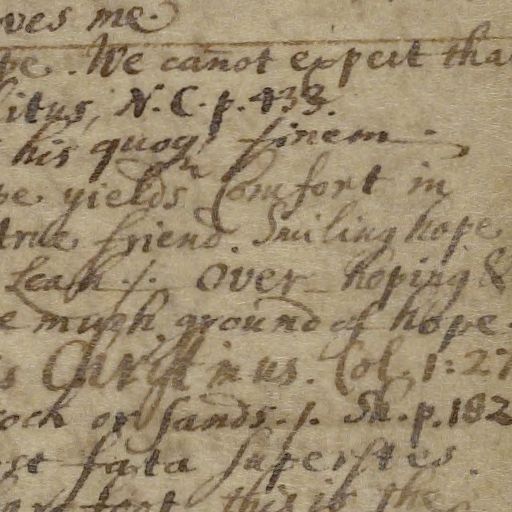 ves me.
pe. We canot expect tha
litus, N. C. p. 433.
his quoq finem.
pe yields Comfort in
true friend. Smiling hope
Leah ./. Over hoping &
e much ground of hope.
s Christ in us. Col. 1:27
rock or sands ./. Sh. p. 182
ost fata superstes
this is the